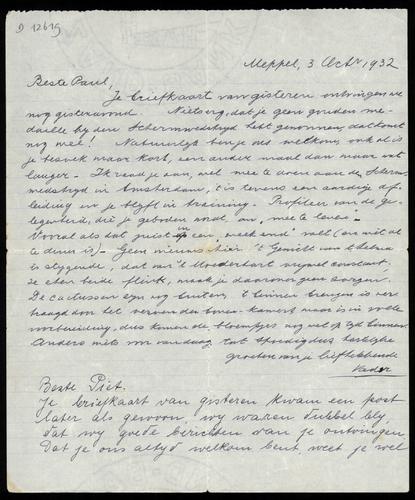 D 12619
Meppel, 3 Octr 1932
Beste Paul,
Je briefkaart van gisteren ontvingen we
nog gisteravond. Niet erg, dat je geen gouden me-
daille bij den Schermwedstrijd hebt genomen, dat komt
nog wel! Natuurlijk ben je ons welkom, ook al is
je bezoek maar kort, een ander maal dan maar wat
langer. Ik raad je aan, wel mee te doen aan de Scherm-
wedstrijd in Amsterdam, 't is tevens een aardige af-
leiding en je blijft in training. Profiteer van de ge-
legenheid, die je geboden wordt, om "mee te leven".
Vooral als dat juist in een "week-end" valt (om uit de
te dienen is). Geen nieuws hier. 't Gewicht van
is stijgende, dat van 't Moederhart vrijwel constant,
ze eten beide flink, maak je daarover geen zorgen.
De cactussen zijn nog buiten, 't binnen brengen is ver-
traagd door het verven der boven-kamer, maar is in volle
voorbereiding, dus komen de bloempjes nog wel op tijd binnen.
Anders niets voor vandaag, tot spoedig dus hartelijke
groeten van je liefhebbende
Vader
Beste Piet.
Je briefkaart van gisteren kwam een post
later als gewoon, wij waren dubbel blij,
dat wij goede berichten van je ontvingen
Dat je ons altijd welkom bent, weet je wel